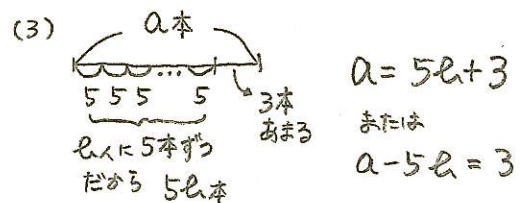 (3)
a本
5 5 5 ... 5
3本
あまる
b人に5本ずつ
だから 5b本
a = 5b + 3
または
a - 5b = 3